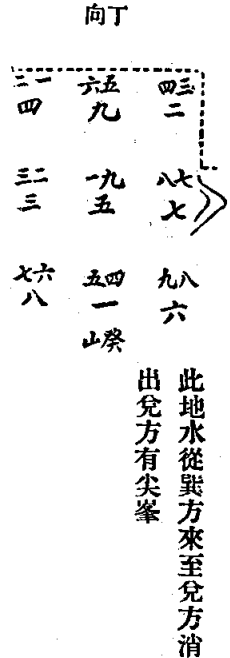 丁向
三四 五六 一二
二 九 四
七八 九一 二三
七 五 三
八九 四五 六七
六 一 八
癸山
此地水從巽方來至兌方消
出兌方有尖峯